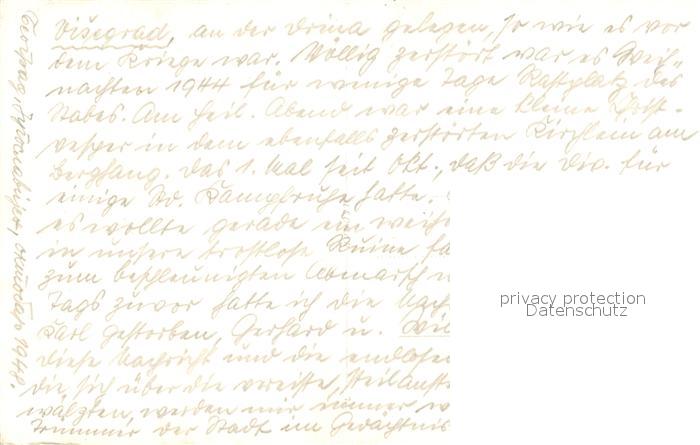 Višegrad, an der Drina gelegen, so wie es vor
dem Kriege war. Völlig zerstört war es Weih-
nachten 1944 für wenige Tage Rastplatz des
Stabes. Am heil. Abend war eine kleine Christ-
vesper in dem ebenfalls zerstörten Kirchlein am
Berghang. Das 1. Mal seit Okt., daß die Div. für
einige Std. Kampfruhe hatte.
es wollte gerade ein
in unsere trostlose Ruine
zum beschleunigten Abmarsch
Tags zuvor hatte ich die
Karl gestorben, Gerhard u.
diese Nachricht und die endlosen
die sich über die vereiste,
wälzten, werden mir immer
Trümmer der Stadt im Gedächtnis
Београд, Југославија, октобар 1948.
privacy protection
Datenschutz